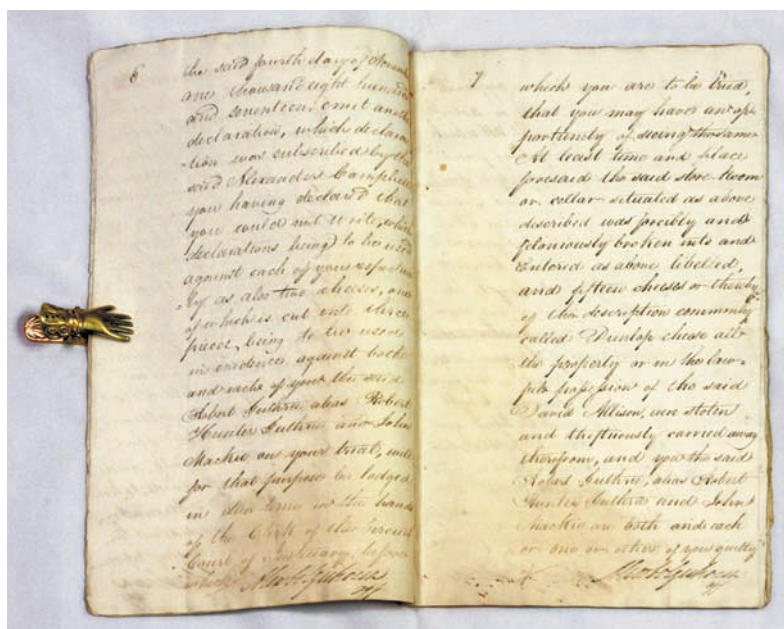 6
the said fourth day of
one thousand eight hundred
and seventeen emit another
declaration, which declara
-tion was subscribed by the
said Alexander Campbell
you having declared that
you could not write, which
declarations being to be used
against each of you respective
-ly as also two cheeses, one
of which is cut into three
pieces, being to be used
in evidence against both
and each of you the said
Robert Guthrie alias Robert
Hunter Guthrie and John
Mackie on your trial, will
for that purpose be lodged
in due time in the hands
of the Clerk of the Circuit
Court of Justiciary, before
which
7
which you are to be tried,
that you may have an op
portunity of seeing the same
At least time and place
foresaid the said store Room
or cellar situated as above
described was forcibly and
feloniously broken into and
Entered as above libelled,
and fifteen cheeses or thereby
of the description commonly
called Dunlop cheese all
the property or in the law-
ful possession of the said
David Allison, were stolen
and theftuously carried away
therefrom, and you the said
Robert Guthrie, alias Robert
Hunter Guthrie and John
Mackie are both and each
or one or other of you guilty